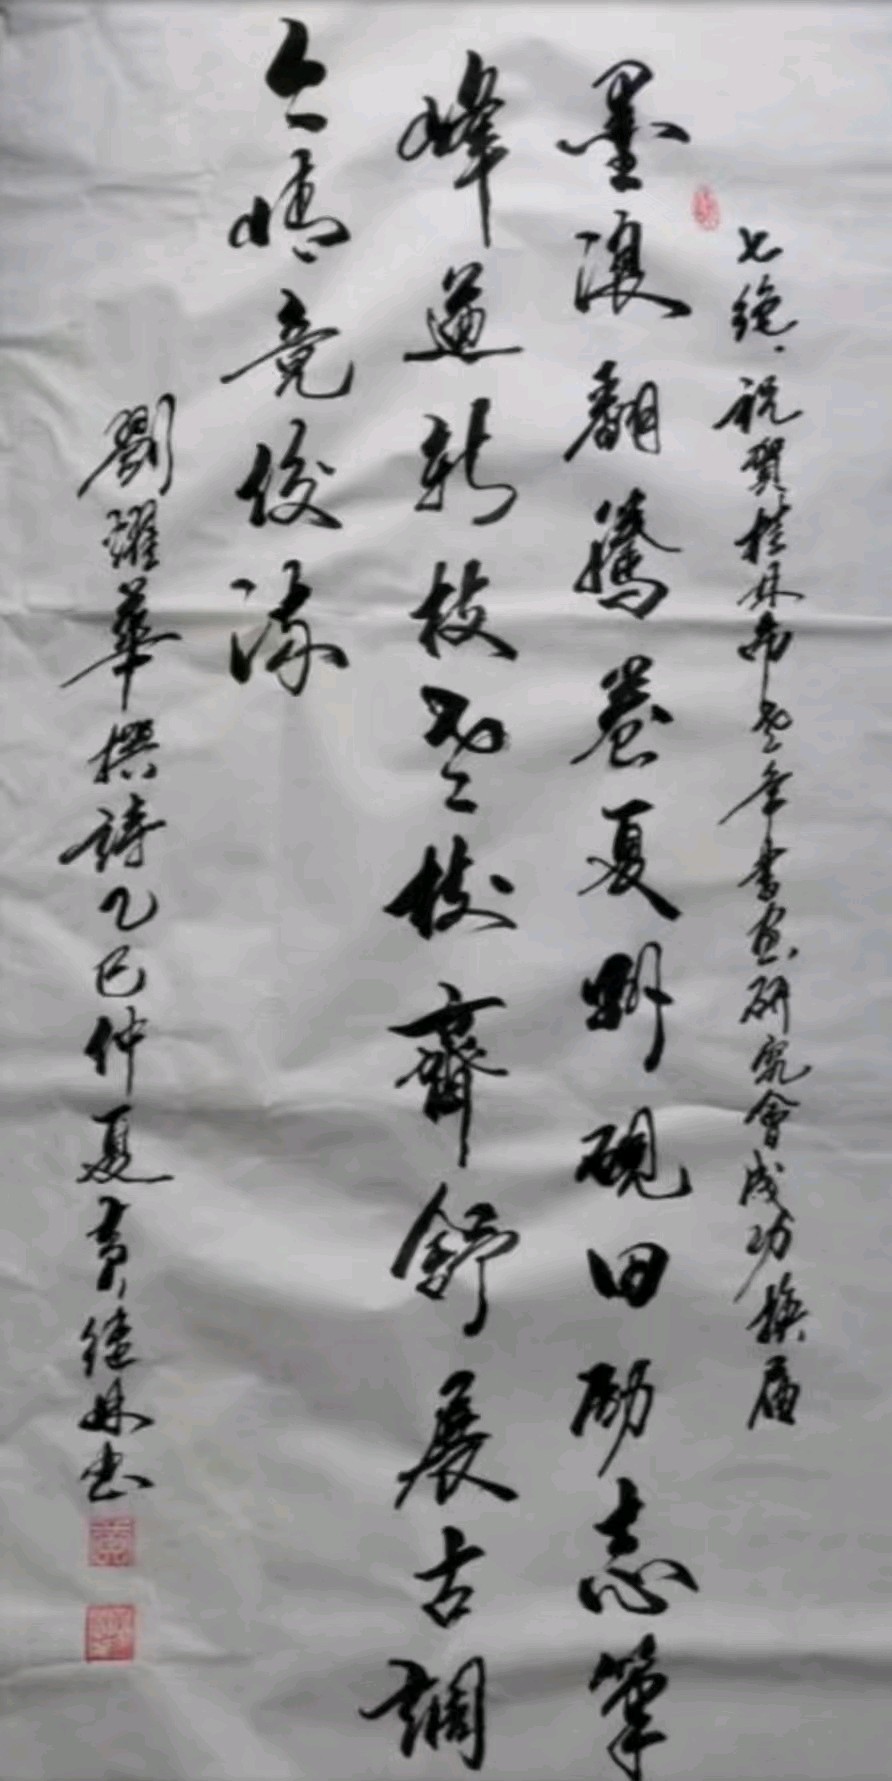 七绝·祝賀桂林市老年書画研究會成功換届
墨浪翻騰卷夏野硯田励志筆
峰遒新枝老枝齊舒展古調
今情竞俊流
劉耀華撰詩乙巳仲夏黄继林书